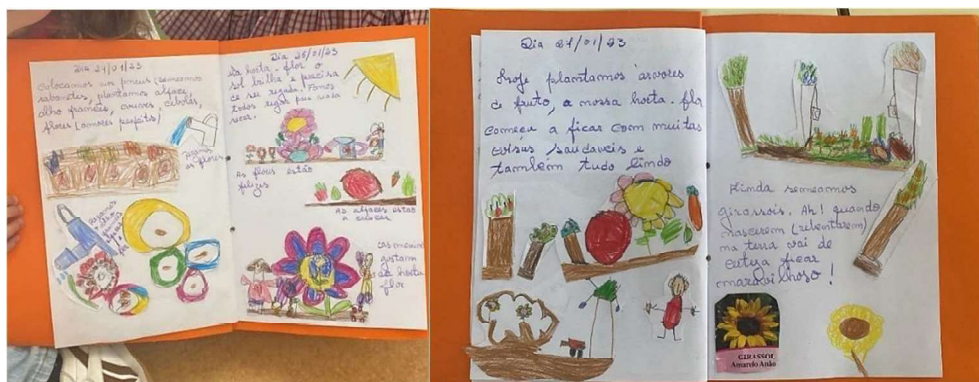 Dia 24/01/23
Colocamos nos pneus (semeamos
rabanetes, plantamos alface,
alho francês, couves, cebolas,
flores (amores perfeitos)
regamos
as flores
Dia 25/01/23
Na horta-flor o
sol brilha e precisa
de ser regada. Fomos
todos regar pois nada
secar.
As flores estão
felizes
As alfaces estão
a crescer
gostam
da horta
-flor
Dia 27/01/23
Hoje plantamos árvores
de fruto, a nossa horta-flor
começa a ficar com muitas
coisas saudáveis e
também tudo lindo
Ainda semeamos
girassóis. Ah! quando
nascerem (rebentarem)
na terra vai de
certeza ficar
maravilhoso!
GIRASSOL
Amarelo Anão